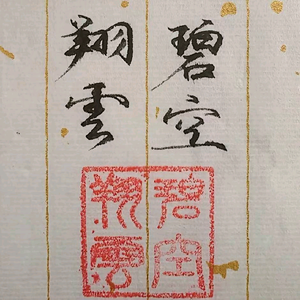 碧空
翔雲
碧空
翔雲